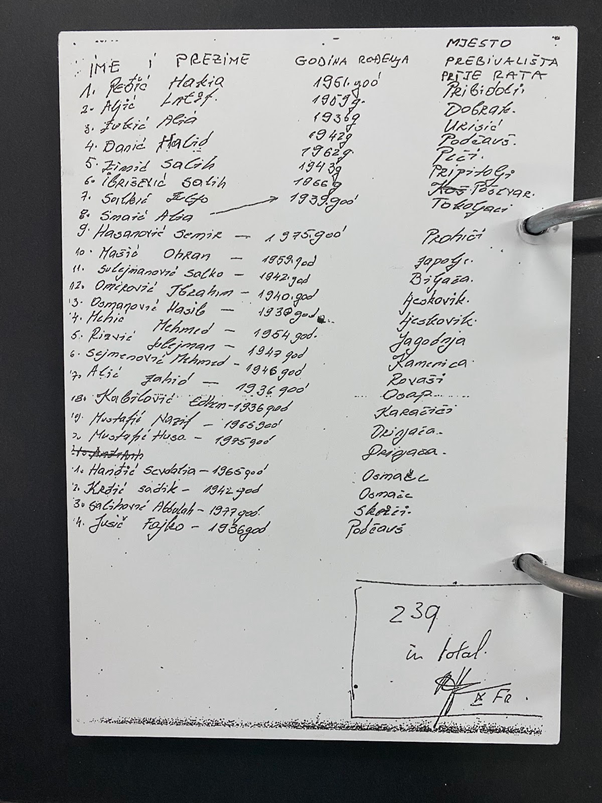 IME I PREZIME GODINA ROĐENJA MJESTO PREBIVALIŠTA PRIJE RATA
1. Hakia 1951.god Pribidoli
2. Aljić Latif 1959g. Dobrak.
3. Alia 1936g
4. Danić Halid 1942g Podčauš.
5. Salih 1962g. Peči.
6. Ibrišević Salih 1943g Pripitolji
7. 1966g Počevar.
8. Smaić Alia 1939.god Tokoljaci
9. Hasanović Semir – 1975.god Prohići
10. Mašić Ohran – 1959.god
11. Sulejmanović Salko – 1942.god Biljača.
12. Omerović Ibrahim – 1940.god Ljeskovik.
3. Osmanović Hasib – 1938god Ljeskovik.
4. Mehić Mehmed – 1954god. Jagodnja
5. Rizvić Sulejman – 1947god Kamenica.
6. Sejmenović Mehmed – 1946god Rovaši
7. Alić Zahid – 1936.god Osap...
18. Edhem – 1936god Karačići
19. Mustafić Nazif – 1965god Drinjača.
Mustafić Huso. – 1975god Drinjača.
1. Handžić Sevdalia – 1965god Osmače
2. Krdžić Sadik – 1942god Osmače
3. Salihović Abdulah – 1977god
4. Jusić Fajko – 1936god Podčauš
239
in total.
FR.